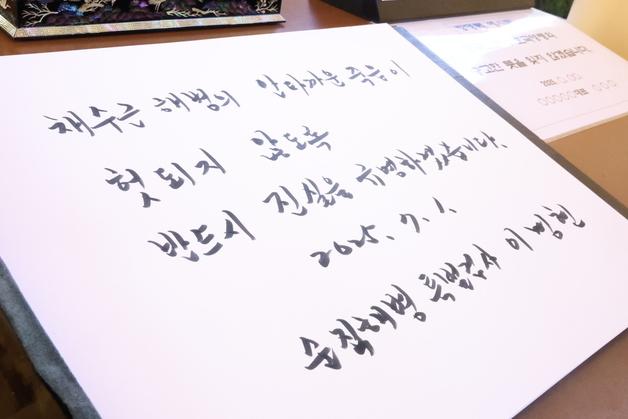 채수근 해병의 안타까운 죽음이
헛되지 않도록
반드시 진실을 규명하겠습니다.
2025. 7. 1.
순직해병 특별검사 이명현
않겠습니다.